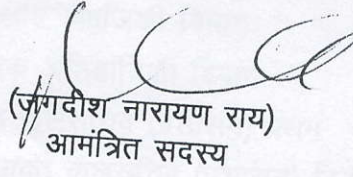 (जगदीश नारायण राय)
आमंत्रित सदस्य